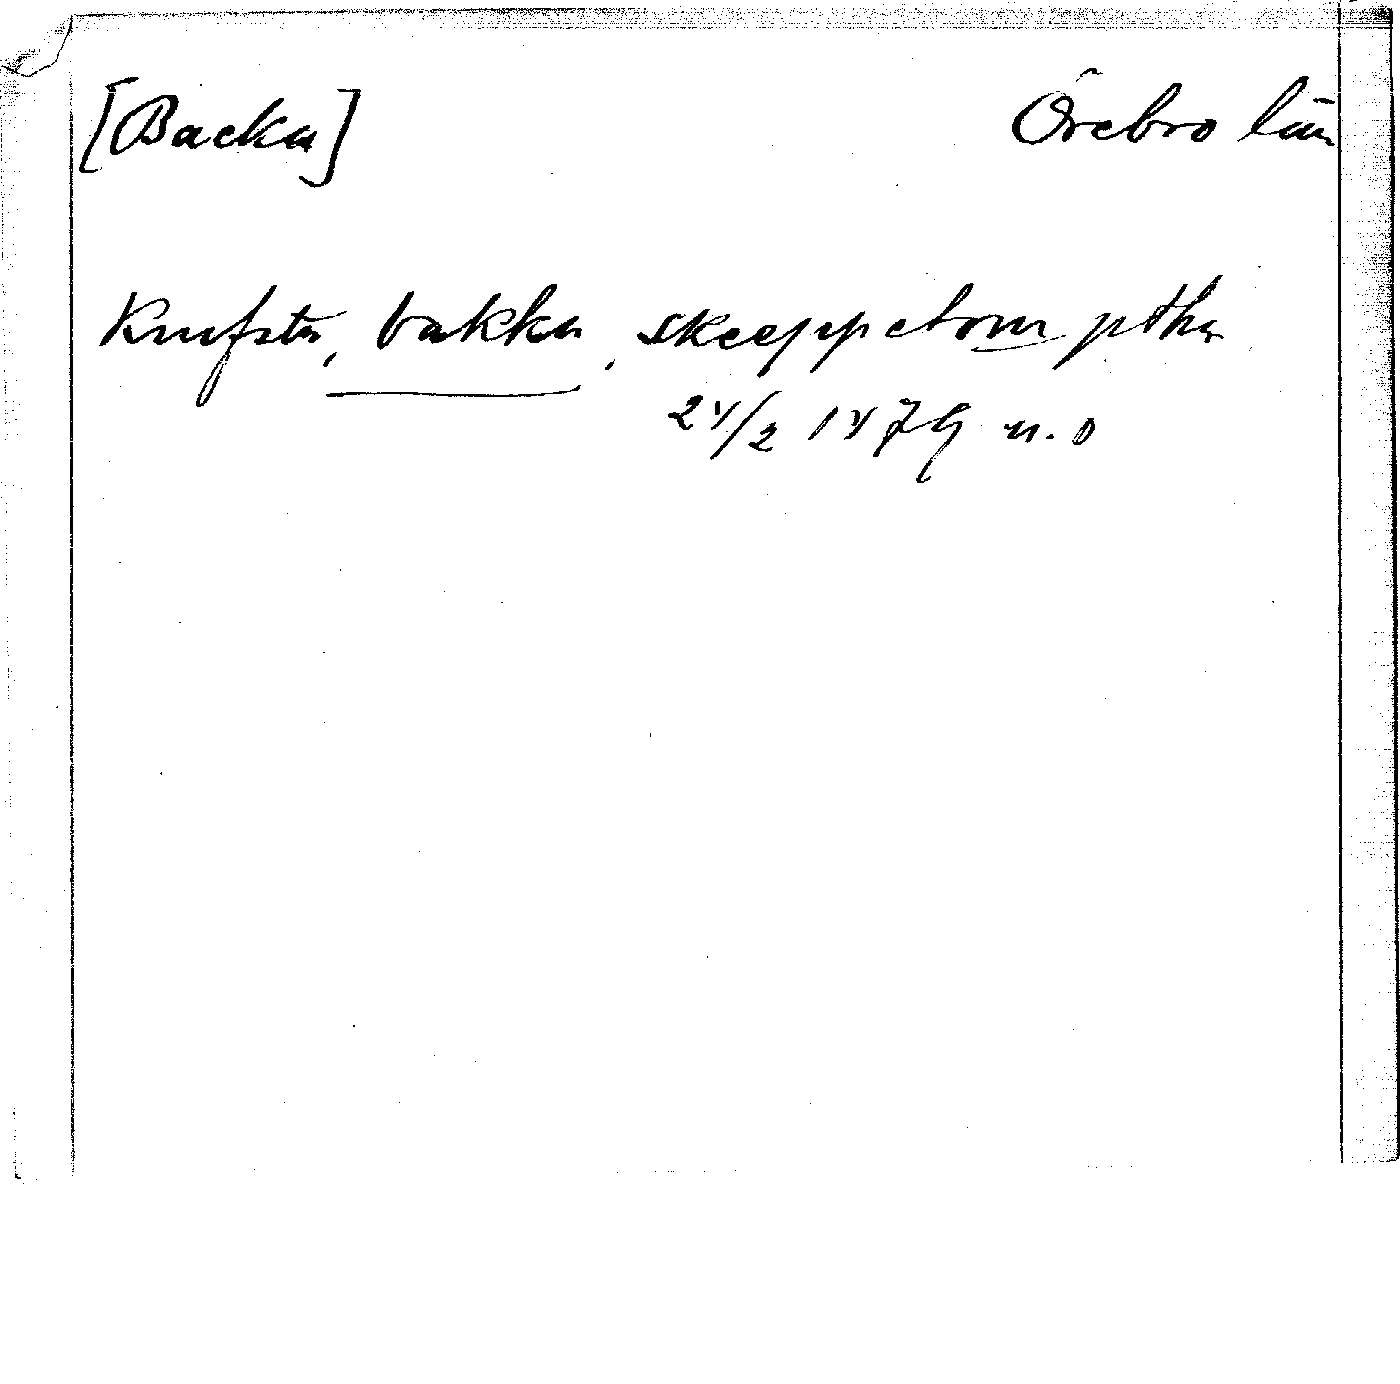 [Backa] Örebro län
Knifsta, bakka, skeeppetom ptha
24/2 1479 n.0